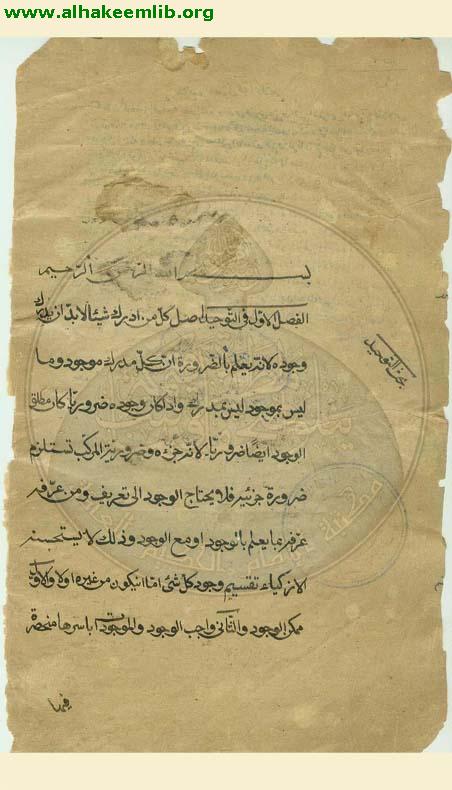 www.alhakeemlib.org
بسم الله الرحمن الرحيم
الفصل الاول في التوحيد اصل كل من ادرك شيئا لابد ان يدرك
وجوده لانه يعلم بالضرورة ان كل مدرك موجود وما
ليس بموجود ليس بمدرك واذا كان وجوده ضروريا كان مطلق
الوجود ايضا ضروريا لانه جزءه وضرورية المركب تستلزم
ضرورة جزئيه فلا يحتاج الوجود الى تعريف ومن عرفه
عرفه بما يعلم بالوجود او مع الوجود وذلك لا يستحسنه
الازكياء تقسيم وجود كل شئ اما ان يكون من غيره اولا والاول
ممكن الوجود والثاني واجب الوجود والموجودات باسرها منحصرة
فيهما
بحث التوحيد